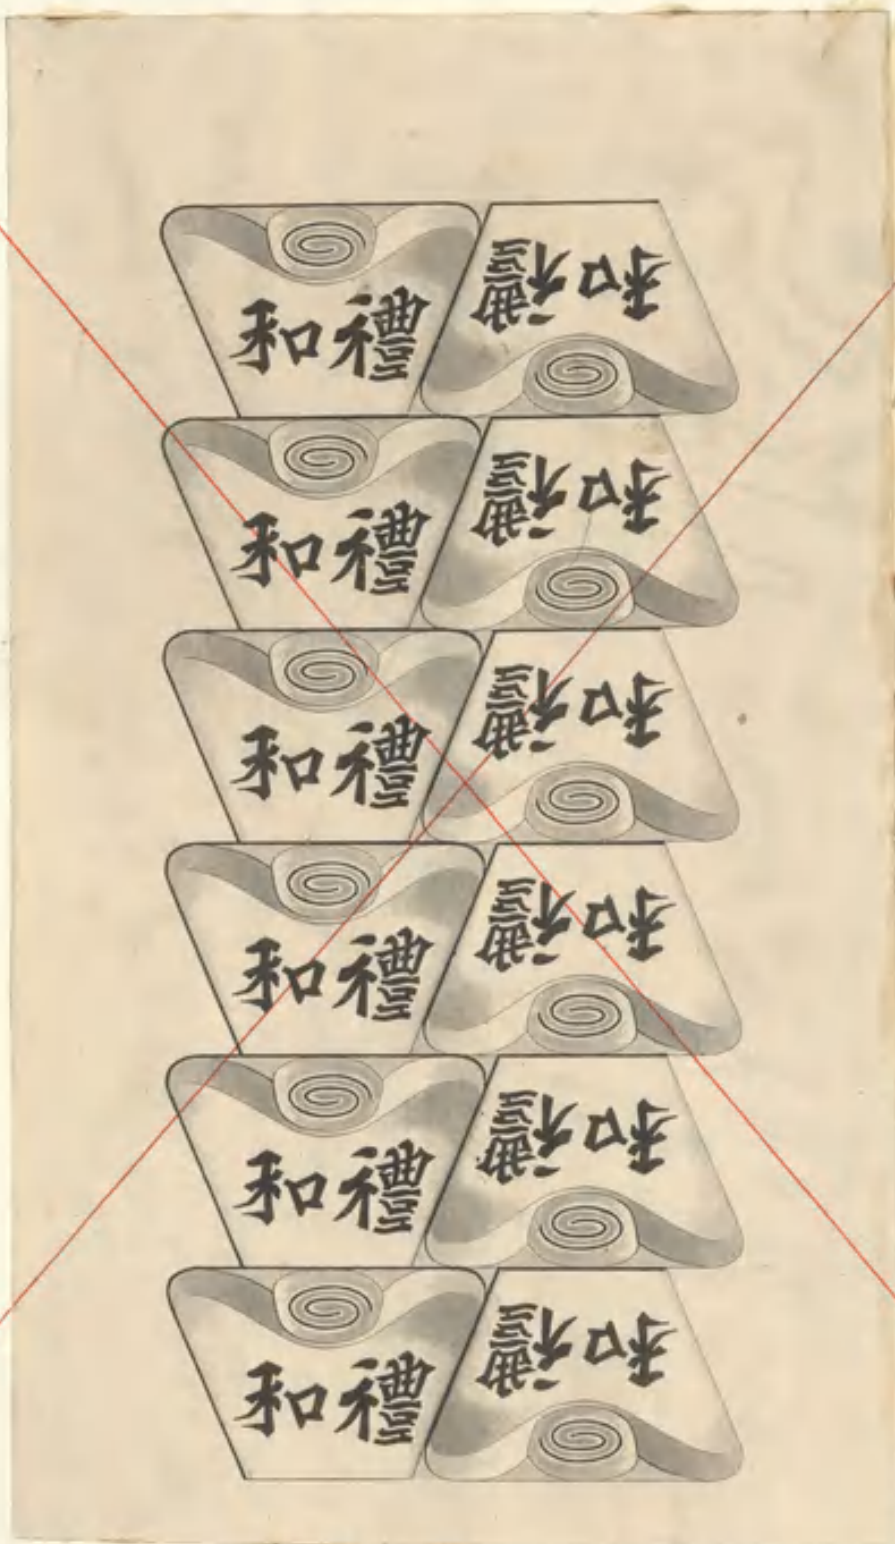 禮和
禮和
禮和
禮和
禮和
禮和
禮和
禮和
禮和
禮和
禮和
禮和